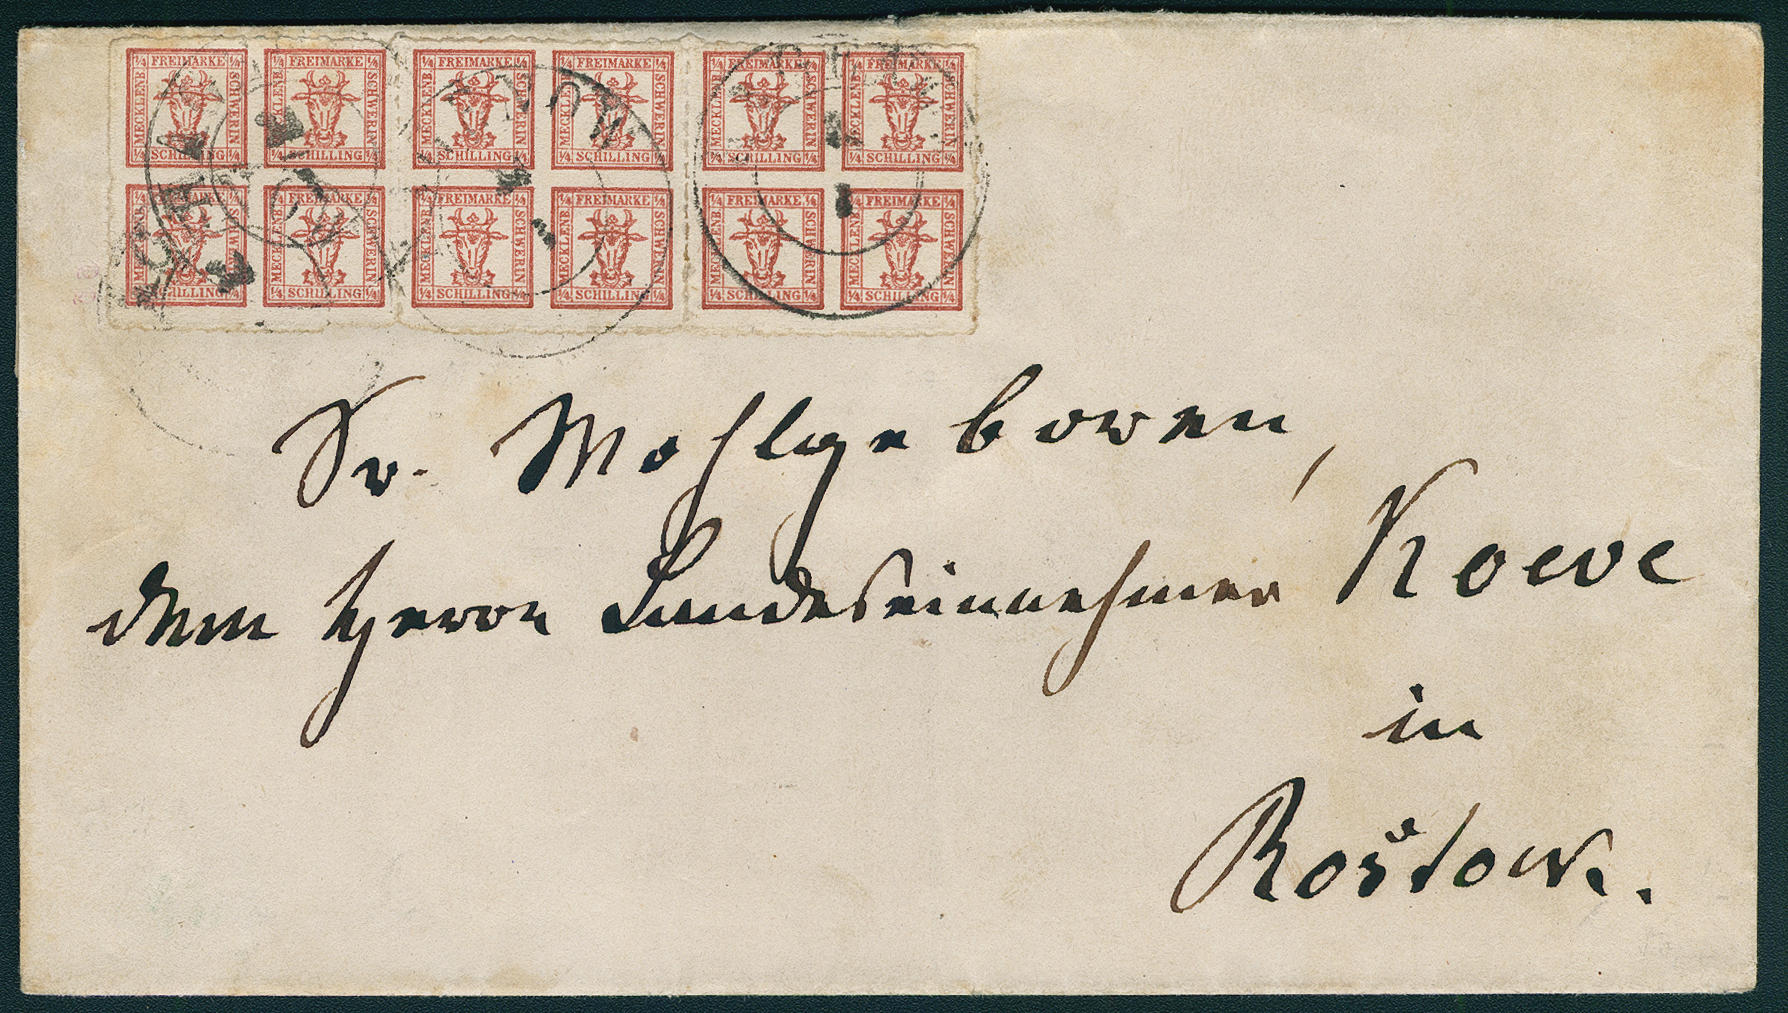 ¼ FREIMARKE ¼ ¼ FREIMARKE ¼ ¼ FREIMARKE ¼ ¼ FREIMARKE ¼ ¼ FREIMARKE ¼ ¼ FREIMARKE ¼
MECKLENB. SCHWERIN MECKLENB. SCHWERIN MECKLENB. SCHWERIN MECKLENB. SCHWERIN MECKLENB. SCHWERIN MECKLENB. SCHWERIN
¼ SCHILLING ¼ ¼ SCHILLING ¼ ¼ SCHILLING ¼ ¼ SCHILLING ¼ ¼ SCHILLING ¼ ¼ SCHILLING ¼
¼ FREIMARKE ¼ ¼ FREIMARKE ¼ ¼ FREIMARKE ¼ ¼ FREIMARKE ¼ ¼ FREIMARKE ¼ ¼ FREIMARKE ¼
MECKLENB. SCHWERIN MECKLENB. SCHWERIN MECKLENB. SCHWERIN MECKLENB. SCHWERIN MECKLENB. SCHWERIN MECKLENB. SCHWERIN
¼ SCHILLING ¼ ¼ SCHILLING ¼ ¼ SCHILLING ¼ ¼ SCHILLING ¼ ¼ SCHILLING ¼ ¼ SCHILLING ¼
Sr. Wohlgeboren,
dem Herrn Landeseinnehmer Koeve
in
Rostock.